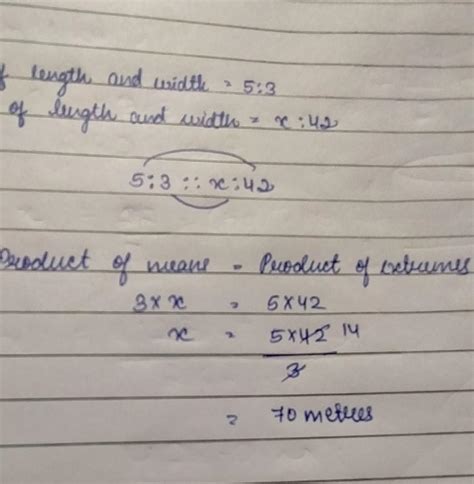 f length and width = 5:3
of length and width = x : 42
5:3 :: x:42
Product of means = Product of extremes
3 × x = 5 × 42
x = 5 × 42 14
3
= 70 metres